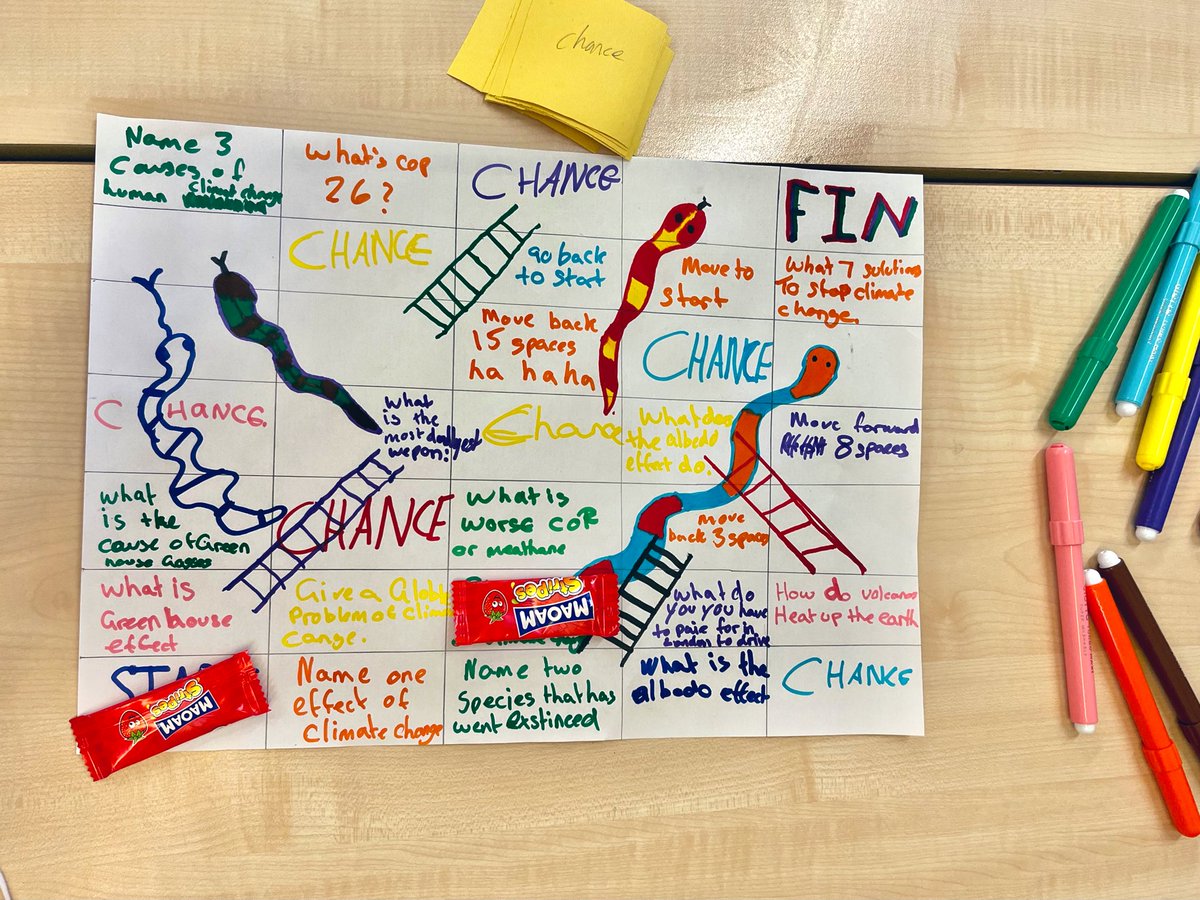 chance
Name 3
Causes of
human climat change
What's cop
26?
CHANCE
FIN
CHANCE
go back
to start
Move to
start
What 7 solutions
To stop climate
change.
Move back
15 spaces
ha ha ha
CHANCE
CHANCE.
What
is the
most deadlyest
wepon?
Chance
What does
the albedo
effect do.
Move forward
8 spaces
what
is the
cause of Green
house Gasses
CHANCE
what is
worse co2
or meathane
move
back 3 spaces
What is
Greenhouse
effect
Give a Globl
Problem of climat
cange.
MAOAM
Stripes
what do
you you have
to paie for in
London to drive
How do volcanos
Heat up the earth
MAOAM
Stripes
Name one
effect of
climate change
Name two
Species that has
went exstinced
What is the
albedo effect
CHANCE